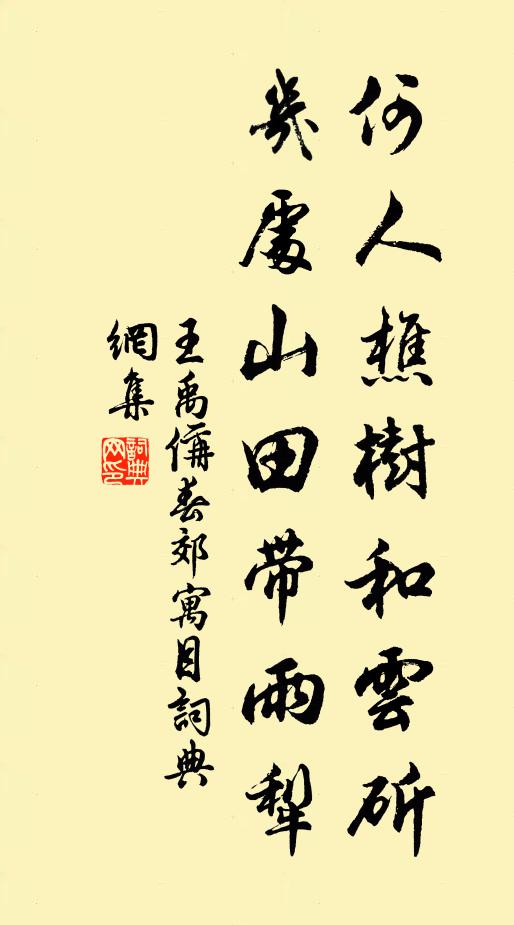 何人樵樹和雲斫
幾處山田帶雨犁
王禹偁春郊寓目詞典
網集